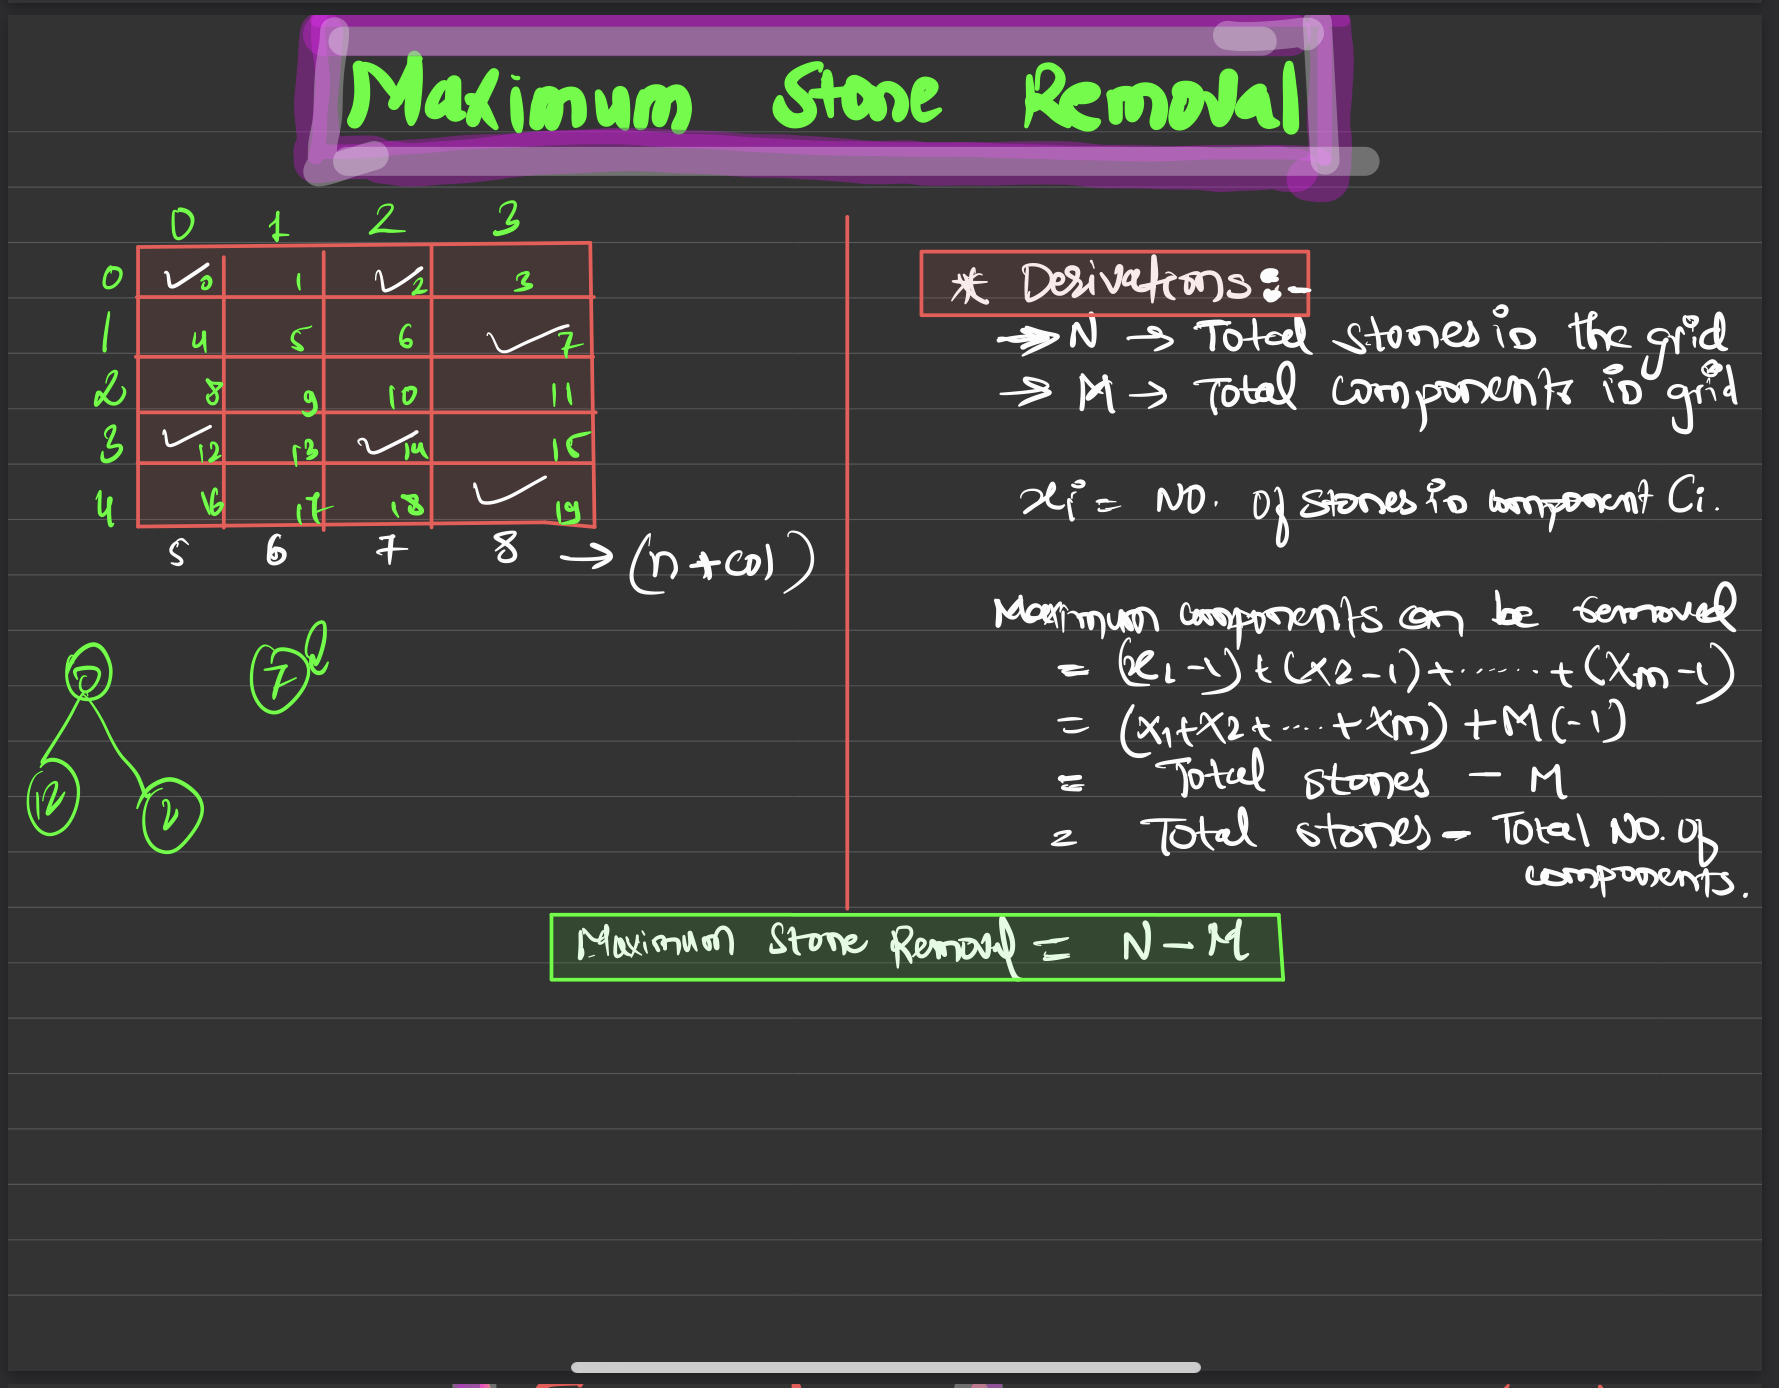 Maximum Stone Removal
0 1 2 3
0 ✓0 1 ✓2 3
1 4 5 6 ✓7
2 8 9 10 11
3 ✓12 13 ✓14 15
4 16 17 18 ✓19
5 6 7 8 → (n + col)
0 7
12 2
* Derivations :-
→ N → Total stones in the grid
→ M → Total components in grid
xi = NO. Of stones in component Ci.
Maximum components can be removed
= (x1-1) + (x2-1) + ...... + (xm-1)
= (x1+x2+ .... + xm) + M(-1)
= Total stones - M
= Total stones - Total NO. of
components.
Maximum Stone Removal = N - M